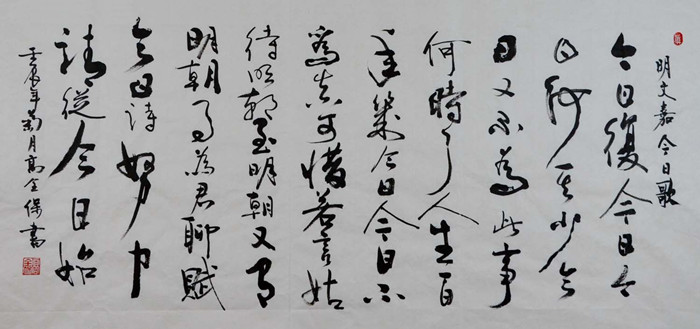 明文嘉今日歌
今日復今日今
日何其少今
日又不為此事
何時了人生百
年幾今日今日不
為真可惜若言姑
待明朝至明朝又有
明朝事為君聊賦
今日詩努力
請從今日始
壬辰年菊月高全保書